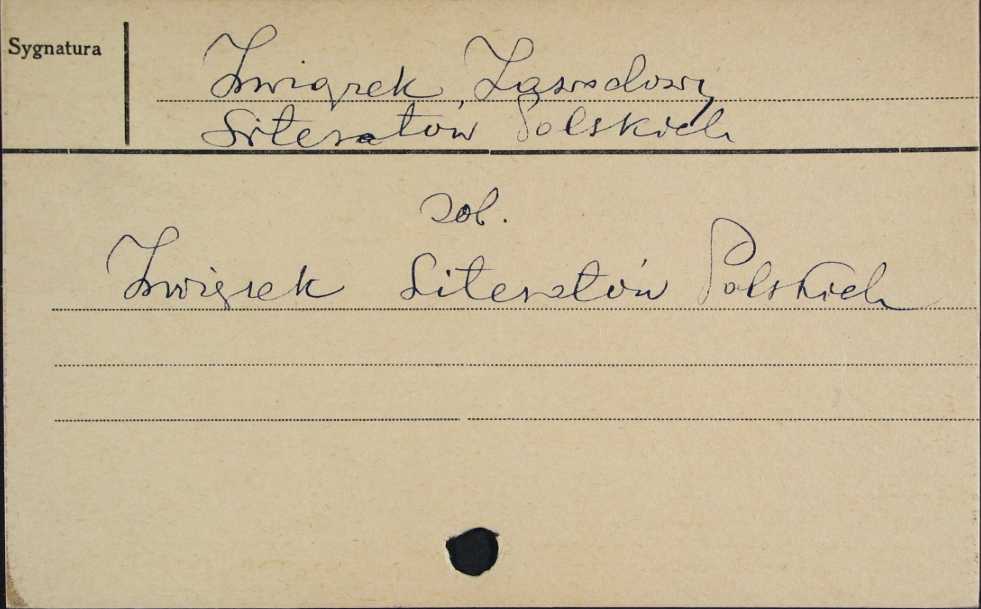 Sygnatura
Związek Zawodowy
Literatów Polskich
zob.
Związek Literatów Polskich